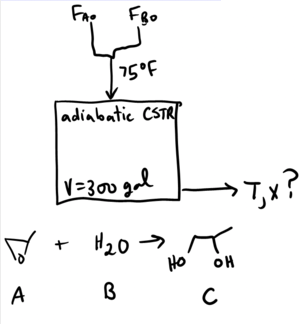 FA0 FB0
75°F
adiabatic CSTR
V=300 gal
T, X?
O + H2O → HO OH
A B C